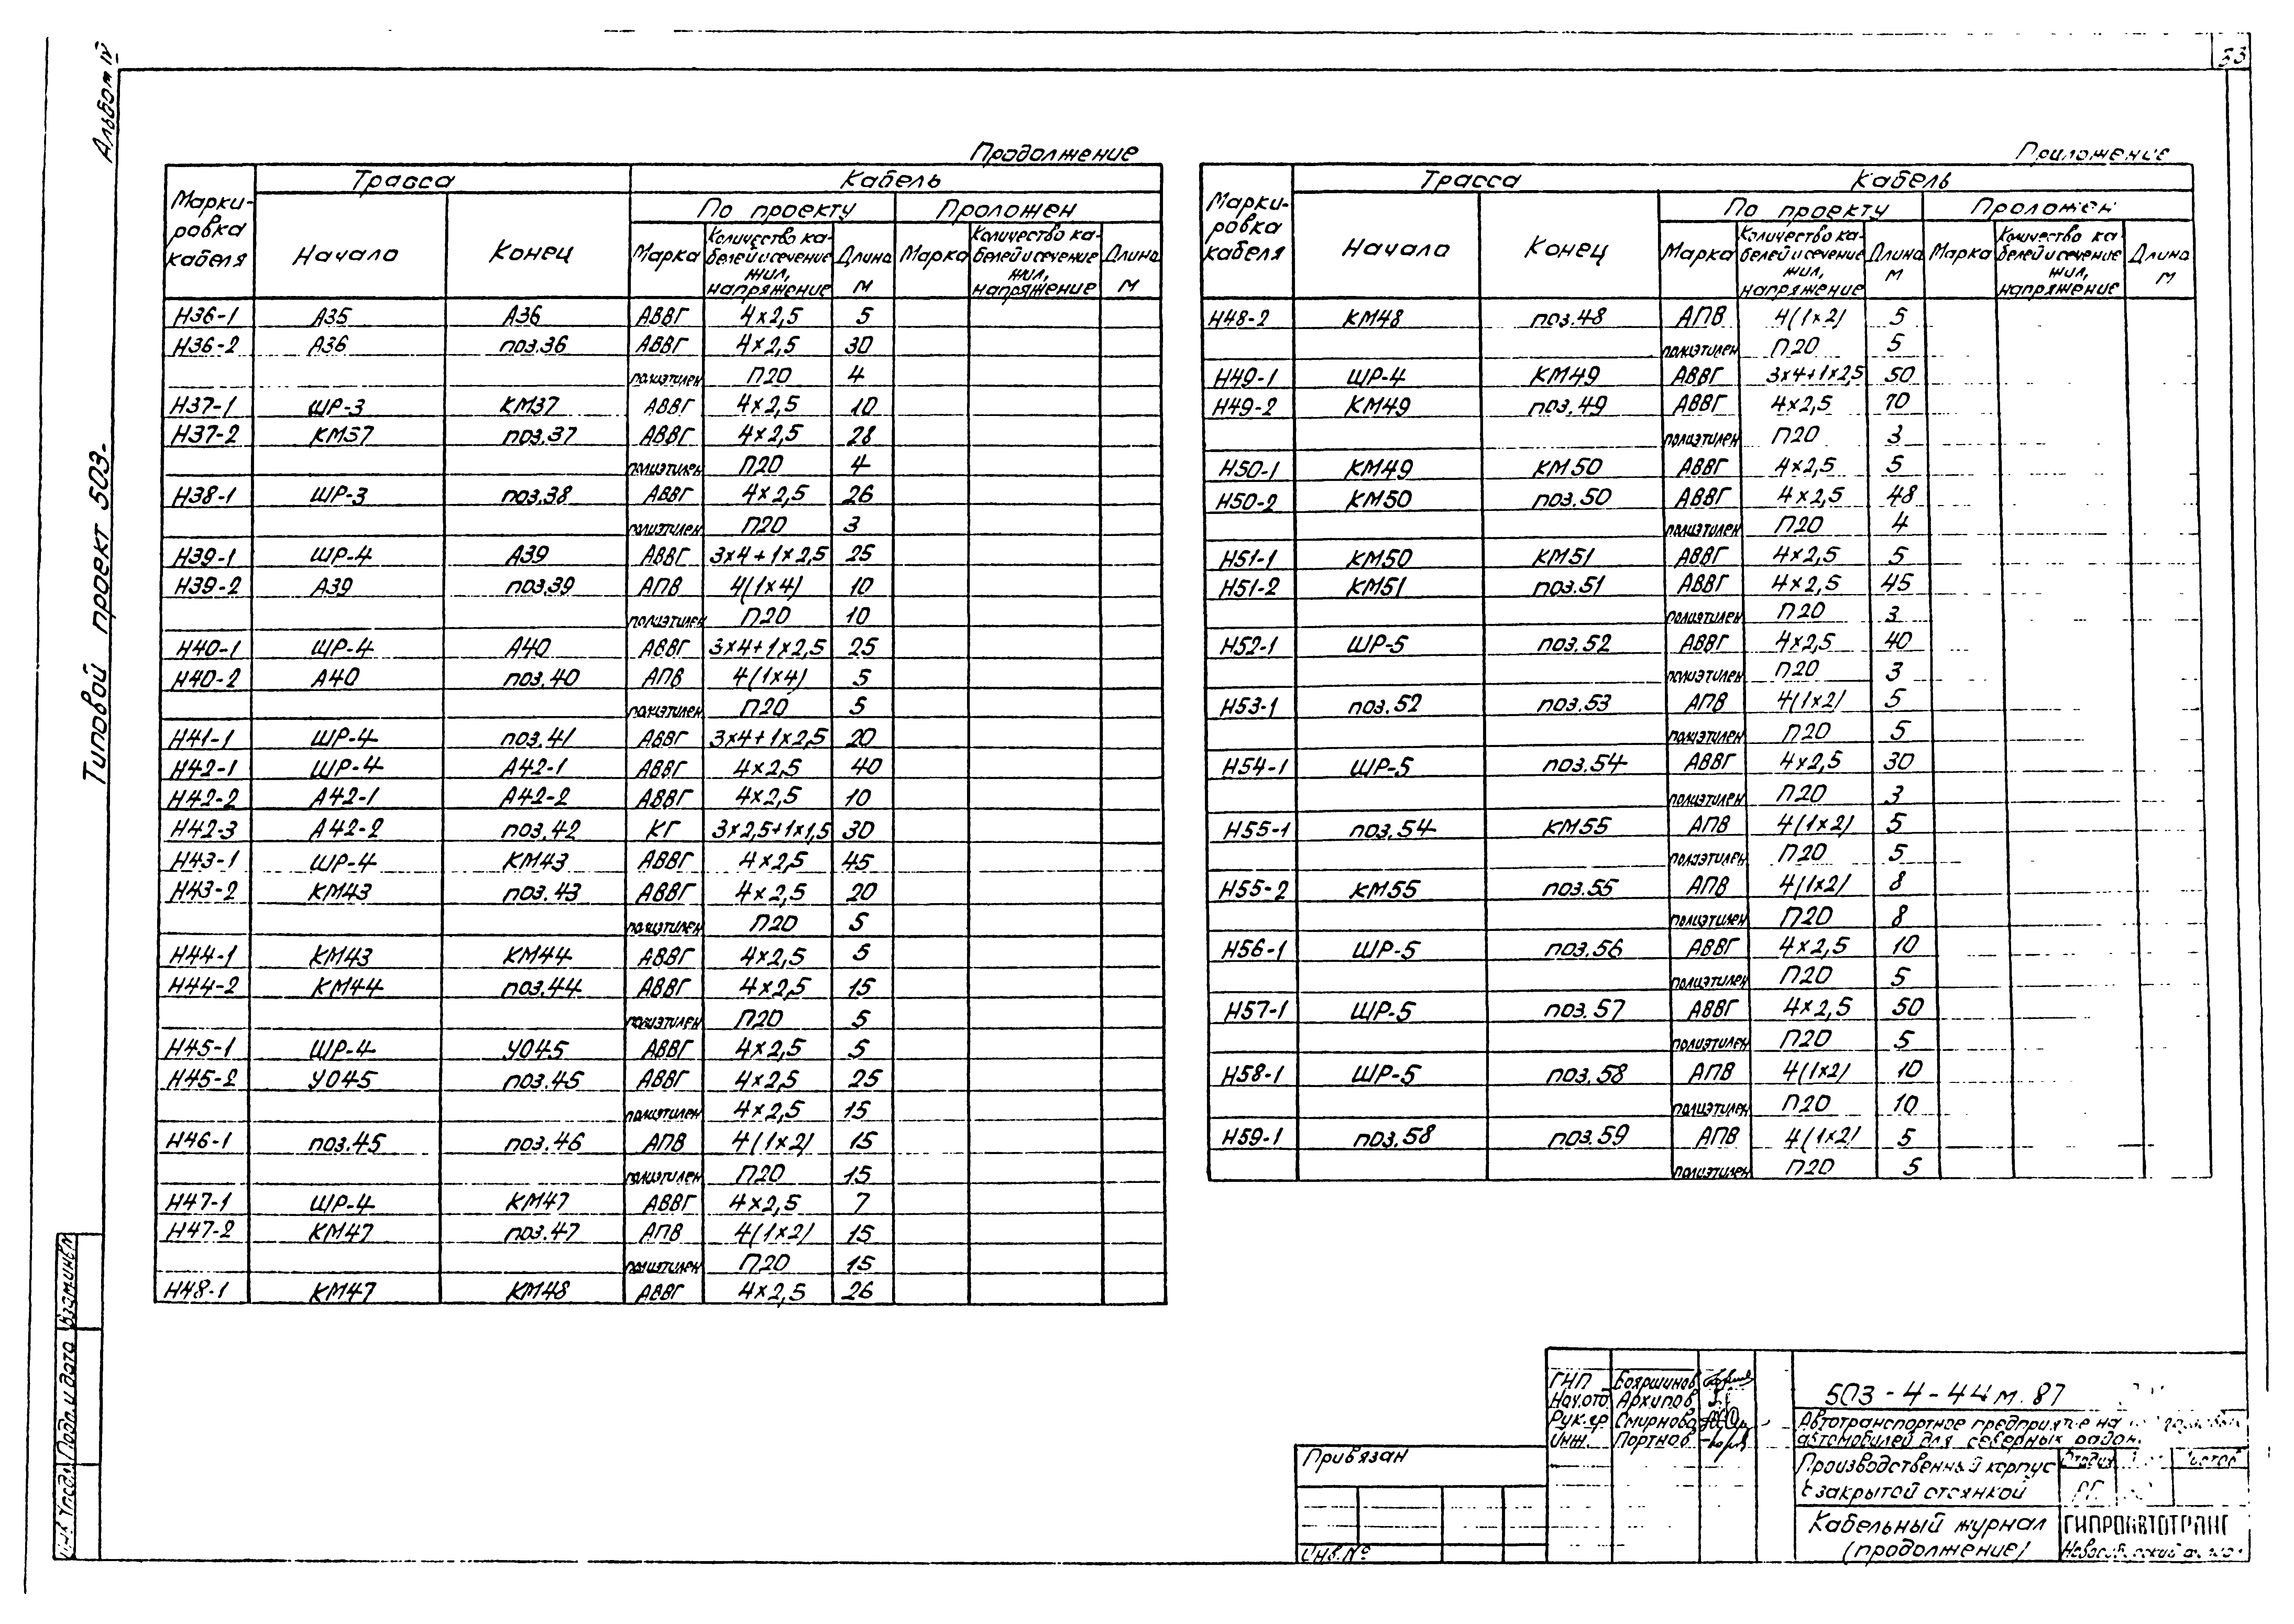 33
Альбом IV
Типовой проект 503-
Продолжение
Марки-ровка кабеля | Трасса | Кабель
По проекту | Проложен
Начало | Конец | Марка | Количество ка-белей и сечение жил, напряжение | Длина м | Марка | Количество ка-белей и сечение жил, напряжение | Длина м
Н36-1 А35 А36 АВВГ 4×2,5 5
Н36-2 А36 поз.36 АВВГ 4×2,5 30
полиэтилен П20 4
Н37-1 ШР-3 КМ37 АВВГ 4×2,5 10
Н37-2 КМ37 поз.37 АВВГ 4×2,5 28
полиэтилен П20 4
Н38-1 ШР-3 поз.38 АВВГ 4×2,5 26
полиэтилен П20 3
Н39-1 ШР-4 А39 АВВГ 3×4+1×2,5 25
Н39-2 А39 поз.39 АПВ 4(1×4) 10
полиэтилен П20 10
Н40-1 ШР-4 А40 АВВГ 3×4+1×2,5 25
Н40-2 А40 поз.40 АПВ 4(1×4) 5
полиэтилен П20 5
Н41-1 ШР-4 поз.41 АВВГ 3×4+1×2,5 20
Н42-1 ШР-4 А42-1 АВВГ 4×2,5 40
Н42-2 А42-1 А42-2 АВВГ 4×2,5 10
Н42-3 А42-2 поз.42 КГ 3×2,5+1×1,5 30
Н43-1 ШР-4 КМ43 АВВГ 4×2,5 45
Н43-2 КМ43 поз.43 АВВГ 4×2,5 20
полиэтилен П20 5
Н44-1 КМ43 КМ44 АВВГ 4×2,5 5
Н44-2 КМ44 поз.44 АВВГ 4×2,5 15
полиэтилен П20 5
Н45-1 ШР-4 УО45 АВВГ 4×2,5 5
Н45-2 УО45 поз.45 АВВГ 4×2,5 25
полиэтилен 4×2,5 15
Н46-1 поз.45 поз.46 АПВ 4(1×2) 15
полиэтилен П20 15
Н47-1 ШР-4 КМ47 АВВГ 4×2,5 7
Н47-2 КМ47 поз.47 АПВ 4(1×2) 15
полиэтилен П20 15
Н48-1 КМ47 КМ48 АВВГ 4×2,5 26
Приложение
Марки-ровка кабеля | Трасса | Кабель
По проекту | Проложен
Начало | Конец | Марка | Количество ка-белей и сечение жил, напряжение | Длина м | Марка | Количество ка-белей и сечение жил, напряжение | Длина м
Н48-2 КМ48 поз.48 АПВ 4(1×2) 5
полиэтилен П20 5
Н49-1 ШР-4 КМ49 АВВГ 3×4+1×2,5 50
Н49-2 КМ49 поз.49 АВВГ 4×2,5 10
полиэтилен П20 3
Н50-1 КМ49 КМ50 АВВГ 4×2,5 5
Н50-2 КМ50 поз.50 АВВГ 4×2,5 48
полиэтилен П20 4
Н51-1 КМ50 КМ51 АВВГ 4×2,5 5
Н51-2 КМ51 поз.51 АВВГ 4×2,5 45
полиэтилен П20 3
Н52-1 ШР-5 поз.52 АВВГ 4×2,5 40
полиэтилен П20 3
Н53-1 поз.52 поз.53 АПВ 4(1×2) 5
полиэтилен П20 5
Н54-1 ШР-5 поз.54 АВВГ 4×2,5 30
полиэтилен П20 3
Н55-1 поз.54 КМ55 АПВ 4(1×2) 5
полиэтилен П20 5
Н55-2 КМ55 поз.55 АПВ 4(1×2) 8
полиэтилен П20 8
Н56-1 ШР-5 поз.56 АВВГ 4×2,5 10
полиэтилен П20 5
Н57-1 ШР-5 поз.57 АВВГ 4×2,5 50
полиэтилен П20 5
Н58-1 ШР-5 поз.58 АПВ 4(1×2) 10
полиэтилен П20 10
Н59-1 поз.58 поз.59 АПВ 4(1×2) 5
полиэтилен П20 5
Взам.инв.№
Подп. и дата
Инв.№ подл.
Привязан
Инв.№
ГИП Бояршинов
Нач.отд Архипов
Рук.гр Смирнова
Инж. Портнов
503-4-44м.87
Автотранспортное предприятие на
автомобилей для северных район.
Производственный корпус
с закрытой стоянкой
Стадия
Кабельный журнал
(продолжение)
ГИПРОАВТОТРАНС
Новосибирский